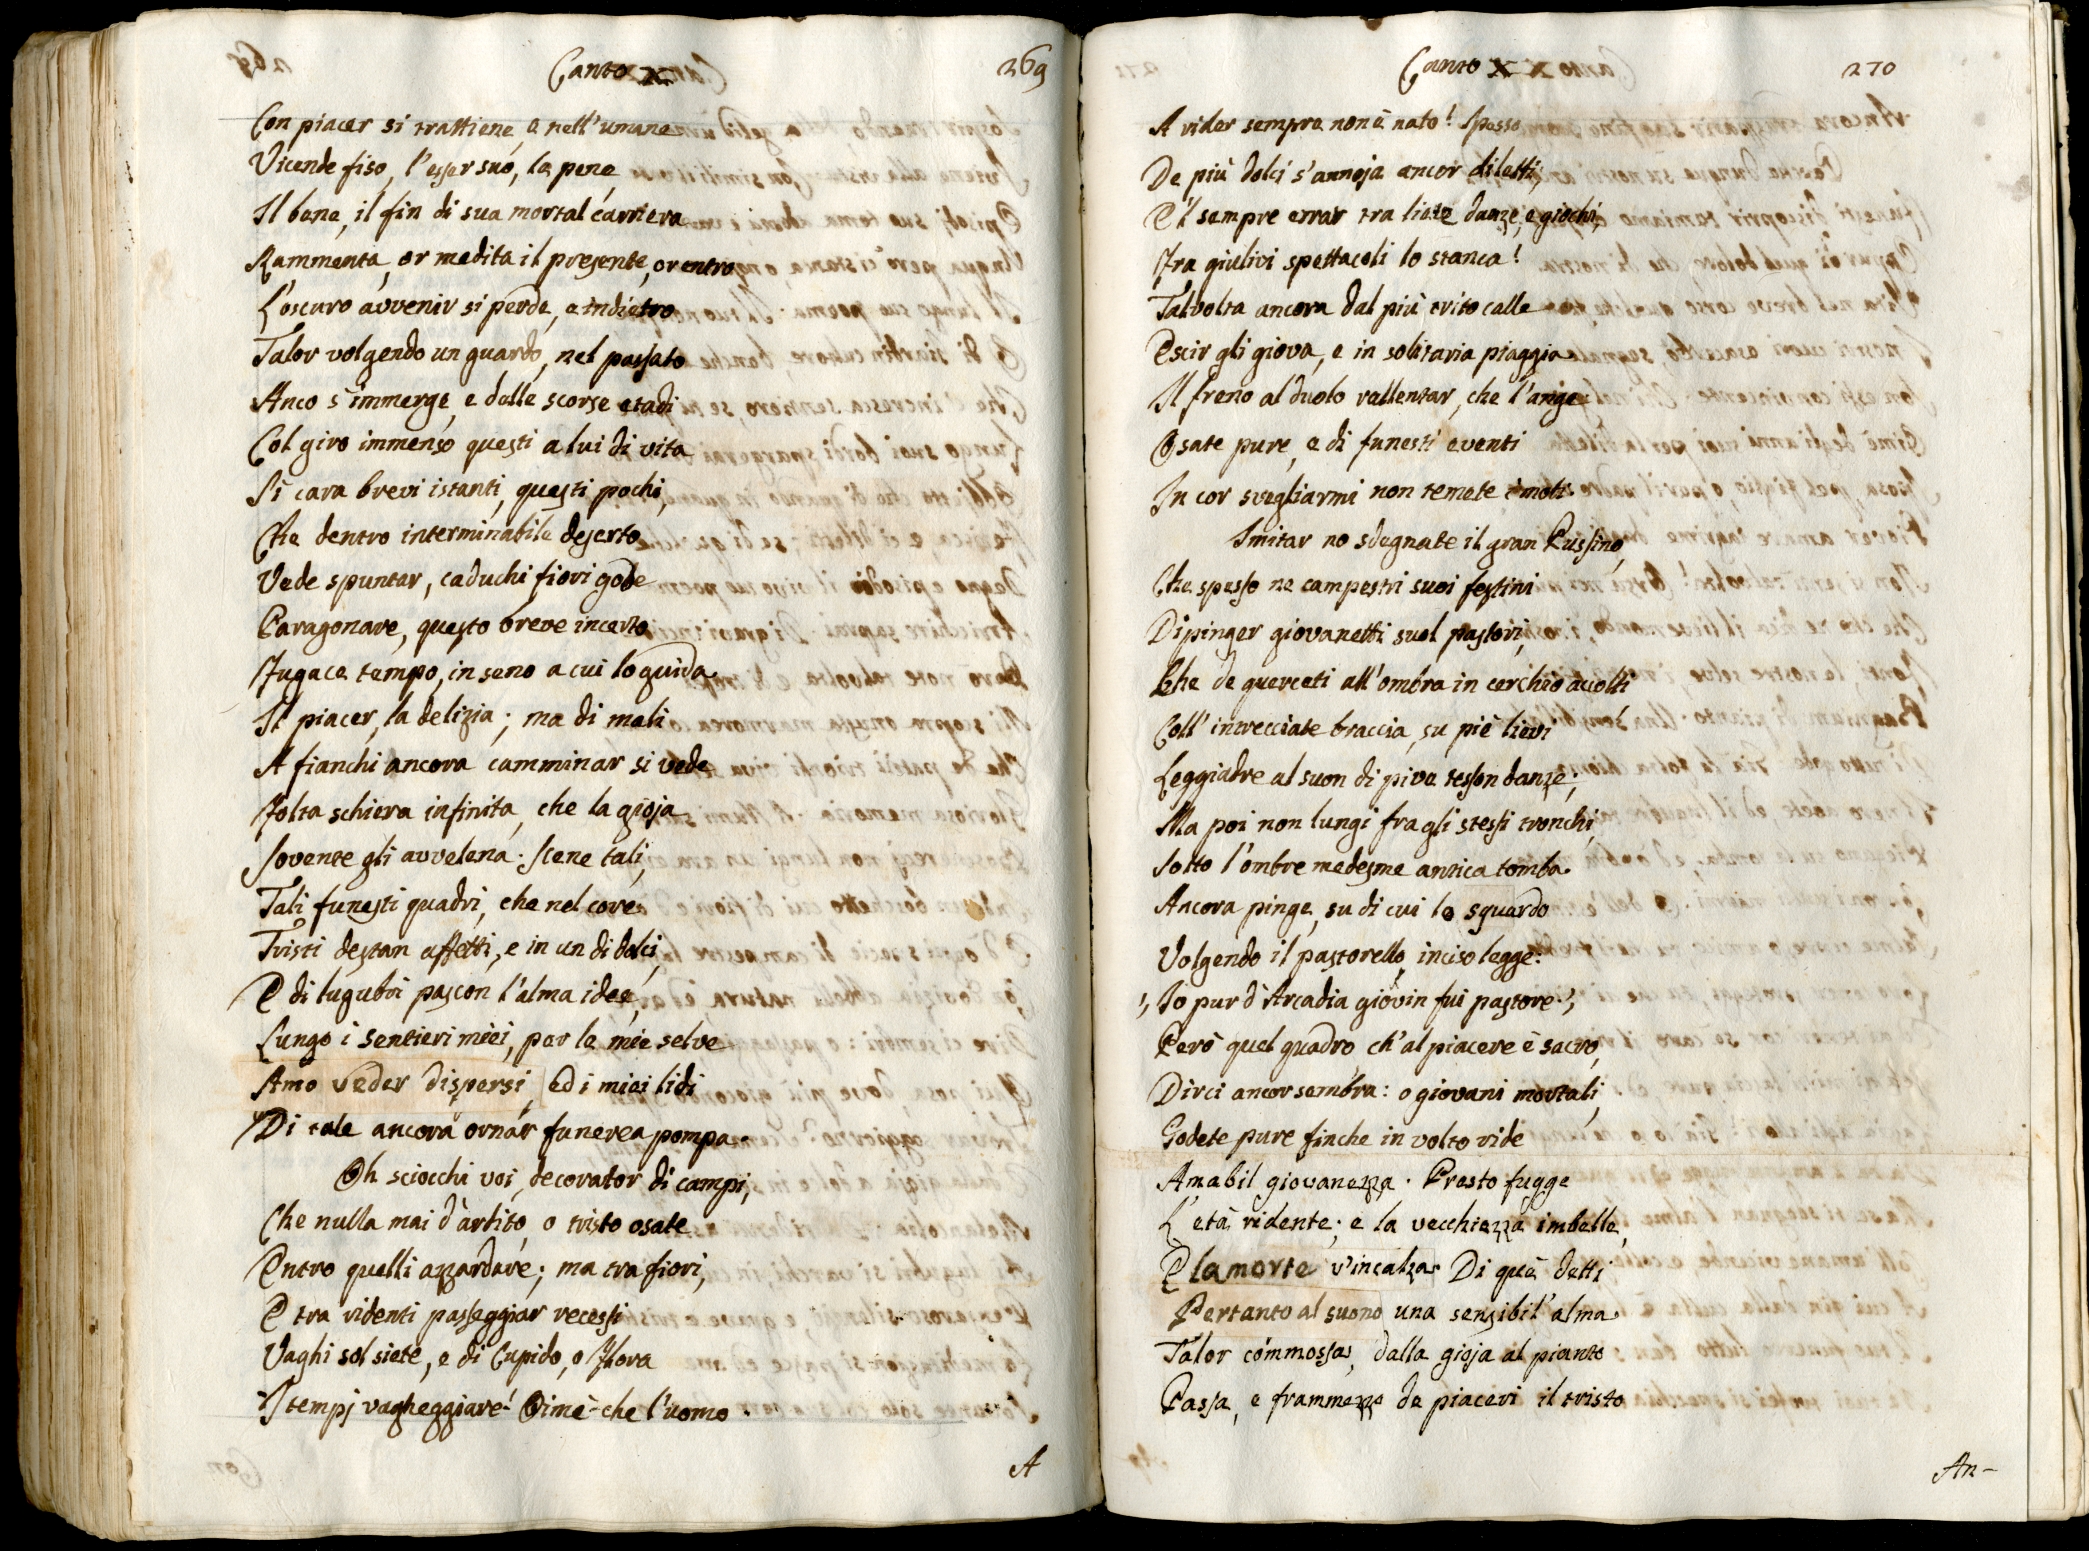 Canto X
269
Con piacer si trattiene, e nell'umane
Vicende fiso, l'esser suo, le pene,
Il bene, il fin di sua mortal carriera
Rammenta, or medita il presente, or entro
L'oscuro avvenir si perde, e indietro
Talor volgendo un guardo, nel passato
Anco s'immerge, e delle scorse etadi
Col giro immenso questi a lui di vita
Sì cara brevi istanti, questi pochi,
Che dentro interminabile deserto
Vede spuntar, caduchi fiori gode
Paragonare, questo breve incerto
Fugace tempo, in seno a cui lo guida
Il piacer, la delizia; ma di mali
A fianchi ancora camminar si vede
Folta schiera infinita, che la gioja
Sovente gli avvelena. Scene tali,
Tali funesti quadri, che nel core
Tristi destan affetti, e in un di dolci,
E di lugubri pascon l'alma idee,
Lungo i sentieri miei, per le mie selve
Amo veder dispersi, ed i miei lidi
Di tale ancora ornar funerea pompa.
Oh sciocchi voi, decorator di campi,
Che nulla mai d'ardito, o tristo osate
Entro quelli azzardare; ma tra fiori,
E tra ridenti passeggiar recessi
Vaghi sol siete, e di Cupido, o Flora
I tempj vagheggiare! Oimè che l'uomo
A
Canto X
270
A rider sempre non è nato! Spesso
De più dolci s'annoja ancor diletti,
E'l sempre errar tra liete danze, e giochi,
Fra giulivi spettacoli lo stanca!
Talvolta ancora dal più trito calle
Escir gli giova, e in solitaria piaggia
Il freno al duolo rallentar, che l'ange.
Osate pure, e di funesti eventi
In cor svegliarmi non temete i moti.
Imitar no sdegnate il gran Pussino,
Che spesso ne campestri suoi festini
Dipinger giovanetti suol pastori,
Che de querceti all'ombra in cerchio accolti
Coll'intrecciate braccia, su piè lievi
Leggiadre al suon di piva tesson danze;
Ma poi non lungi fra gli stessi tronchi,
Sotto l'ombre medesme antica tomba
Ancora pinge, su di cui lo sguardo
Volgendo il pastorello, inciso legge:
„ Io pur d'Arcadia giovin fui pastore. „
Però quel quadro ch'al piacere è sacro,
Dirci ancor sembra: o giovani mortali,
Godete pure finche in volto ride
Amabil giovanezza. Presto fugge
L'età ridente; e la vecchiezza imbelle,
E la morte v'incalza. Di què detti
Pertanto al suono una sensibil'alma
Talor commossa, dalla gioja al pianto
Passa, e frammezzo de piaceri il tristo
An-